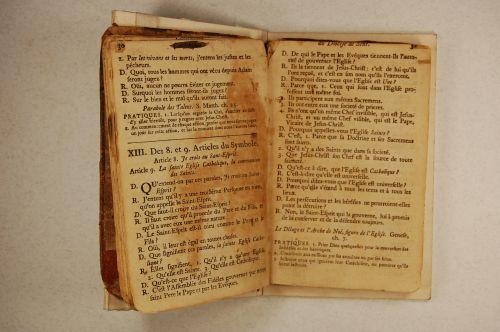 30
2. Par les vivans & les morts, j'entens les justes & les
pécheurs.
D. Quoi, tous les hommes qui ont vécu depuis Adam
seront jugez?
R. Oüi, aucun ne pourra éviter ce jugement.
D. Surquoi les hommes seront-ils jugez?
R. Sur le bien & le mal qu'ils auront fait.
Parabole des Talens. S. Matth. ch. 25.
PRATIQUES. 1.
XIII. Des 8. et 9. Articles du Symbole.
Article 8. Je crois au Saint-Esprit.
Article 9. La sainte Eglise Catholique, la communion
des Saints.
D. QU'entend-on par ces paroles, Je crois au Saint-
Esprit?
R. J'entens qu'il y a une troisiéme Personne en Dieu,
qu'on appelle le Saint-Esprit.
D. Que faut-il croire du Saint-Esprit?
R. Il faut croire qu'il procede du Pere & du Fils, &
qu'il a avec eux une même nature.
D. Le Saint-Esprit est-il Dieu comme le Pere & le
Fils?
R. Oüi, il leur est égal en toutes choses.
D. Que signifient ces paroles, la sainte Eglise Catho-
lique?
R. Elles signifient, 1. Qu'il y a une Eglise.
2. Qu'elle est Sainte. 3. Qu'elle est Catholique.
D. Qu'est-ce que l'Eglise?
R. C'est l'Assemblée des Fideles gouvernée par notre
saint Pere le Pape & par les Evêques.
du Diocese de Sens. 31
D. De qui le Pape & les Evêques tiennent-ils l'autorité
de gouverner l'Eglise?
R. Ils la tiennent de Jesus-Christ: c'est de lui qu'ils
l'ont reçûë, & c'est en son nom qu'ils l'exercent.
D. Pourquoi dites-vous que l'Eglise est Une?
R. Parce que, 1. Ceux qui sont dans l'Eglise pro-
fessent une même foi.
2. Ils participent aux mêmes Sacremens.
3. Ils ont entre eux une societé de prieres.
4. Ils n'ont qu'un même Chef invisible, qui est Jesus-
Christ, & un même Chef visible, qui est le Pape,
Vicaire de Jesus-Christ.
D. Pourquoi appellez-vous l'Eglise Sainte?
R. C'est, 1. Parce que sa Doctrine & ses Sacremens
sont saints.
2. Qu'il n'y a des Saints que dans sa societé.
3. Que Jesus-Christ son Chef est la source de toute
sainteté.
D. Qu'est-ce à dire, que l'Eglise est Catholique?
R. C'est-à-dire qu'elle est universelle.
D. Pourquoi dites-vous que l'Eglise est universelle?
R. Parce qu'elle s'étend à tous les tems & à tous les
lieux.
D. Les persécutions & les hérésies ne pourront-elles
point la détruire?
R. Non, le Saint-Esprit qui la gouverne, lui a promis
de la conserver & de la défendre toujours.
Le Déluge & l'Arche de Noé, figure de l'Eglise. Genese,
ch. 7.
PRATIQUES. 1. Prier Dieu